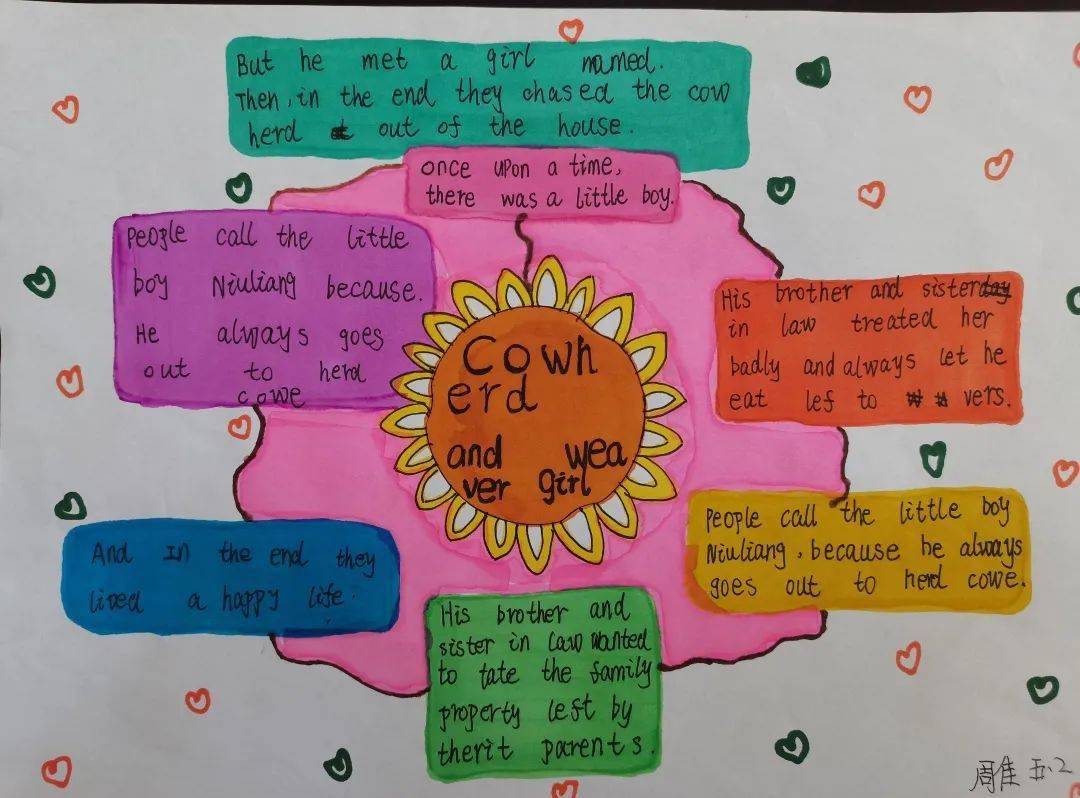 But he met a girl named.
Then, in the end they chased the cow
herd out of the house.
once upon a time,
there was a little boy.
People call the little
boy Niuliang because.
He always goes
out to herd
cowe
His brother and sister
in law treated her
badly and always let he
eat lef to vers.
Cowh
erd
and wea
ver girl
People call the little boy
Niuliang, because he always
goes out to herd cowe.
And In the end they
lived a happy life.
His brother and
sister in law wanted
to tate the family
property left by
therit parents.
周佳 五.2